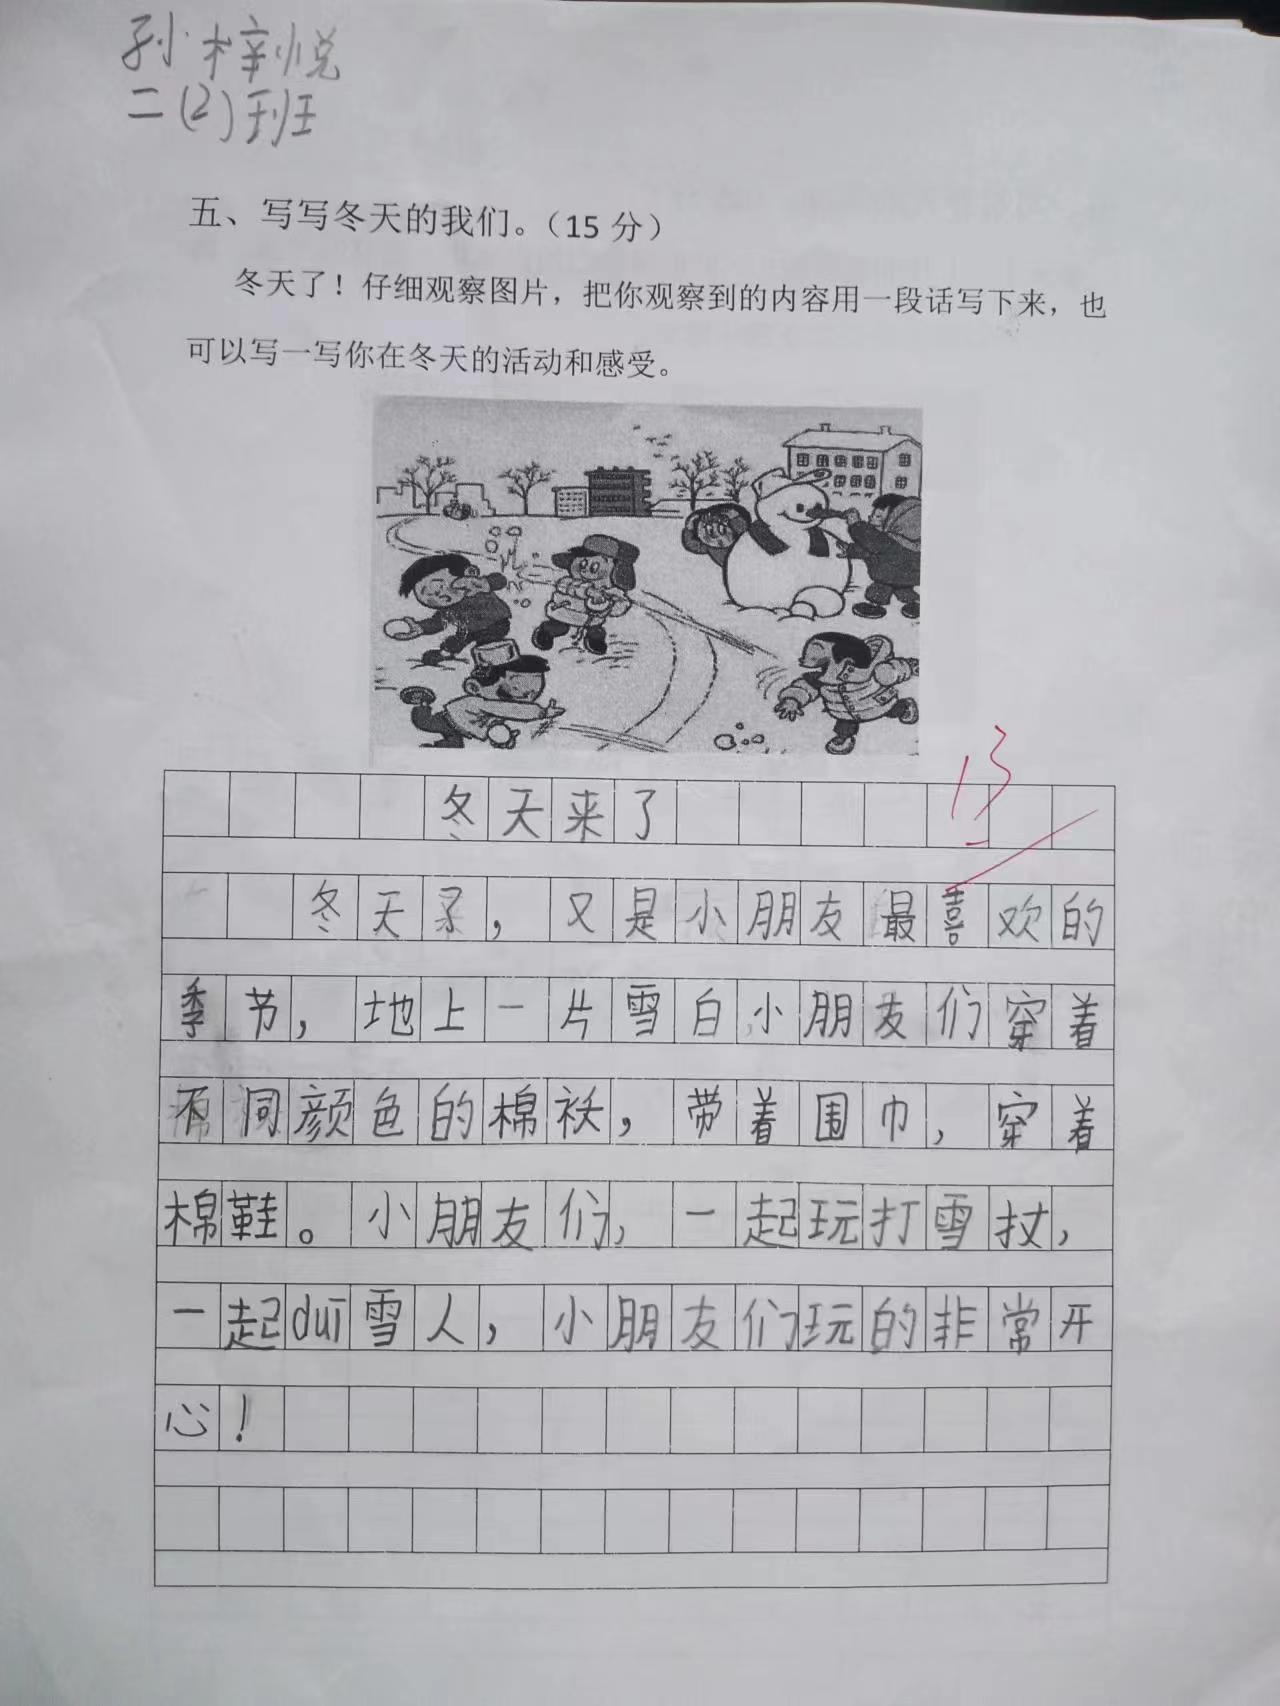 孙梓悦
二(2)班
五、写写冬天的我们。（15 分）
冬天了！仔细观察图片，把你观察到的内容用一段话写下来，也
可以写一写你在冬天的活动和感受。
13
冬天来了
冬天了，又是小朋友最喜欢的
季节，地上一片雪白，小朋友们穿着
不同颜色的棉袄，带着围巾，穿着
棉鞋。小朋友们，一起玩打雪扙，
一起duī雪人，小朋友们玩的非常开
心！